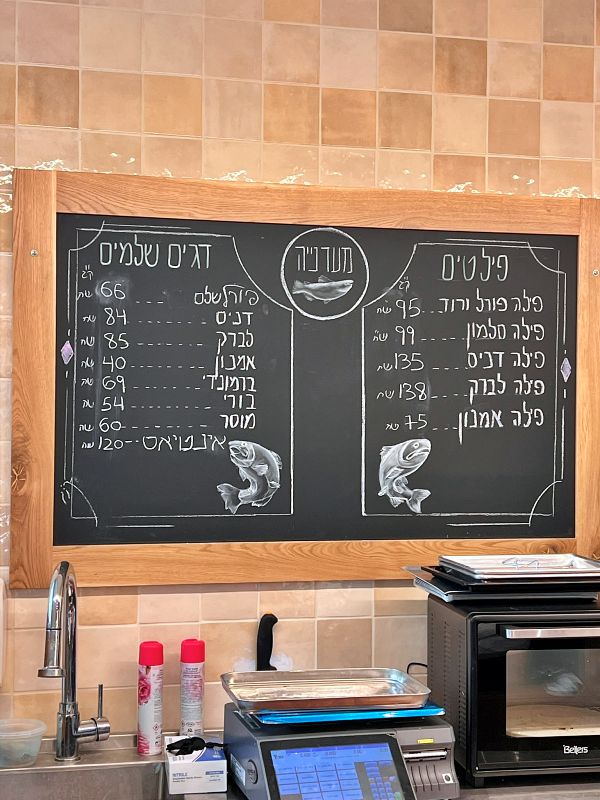 מעדנייה
פילטים
ק"ג
פילה פורל ורוד ... 95 ש"ח
פילה סלמון ...... 99 ש"ח
פילה דניס ...... 135 ש"ח
פילה לברק .... 138 ש"ח
פילה אמנון .... 75 ש"ח
דגים שלמים
ק"ג
פורל שלם .... 66 ש"ח
דניס ........ 84 ש"ח
לברק ........ 85 ש"ח
אמנון ........ 40 ש"ח
ברמונדי ...... 69 ש"ח
בורי ........ 54 ש"ח
מוסר ........ 60 ש"ח
אינטיאס --- 120 ש"ח
NITRILE
Bellers